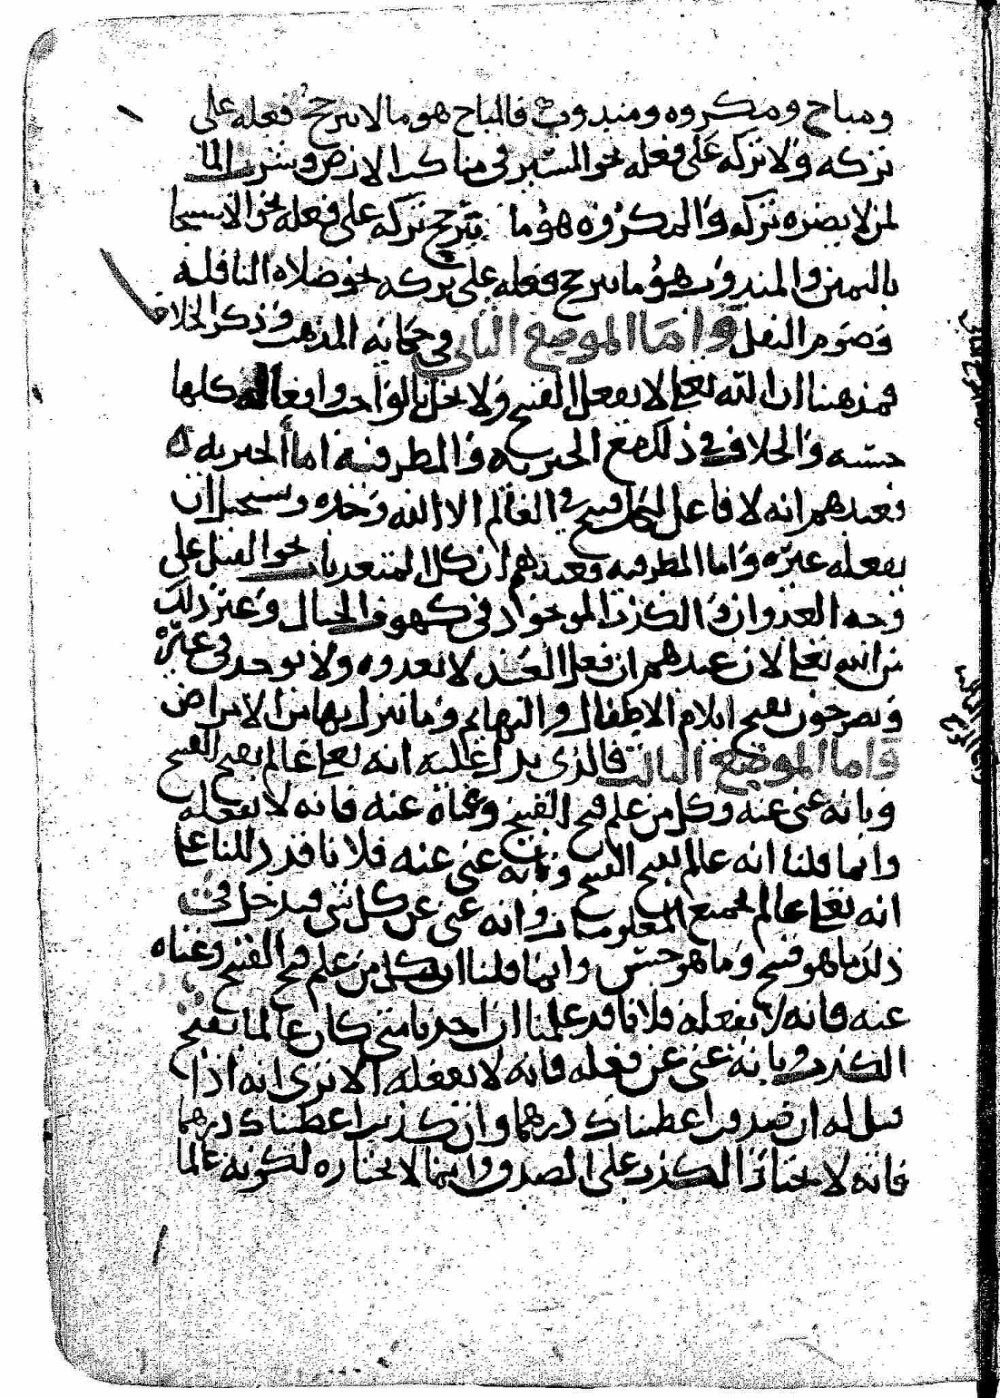 ومباح ومكروه ومندوب فالمباح هو ما لا يترجح فعله على
تركه ولا تركه على فعله نحو السير في مناكب الارض وشرب الما
لمن لا يضره تركه والمكروه هو ما يترجح تركه على فعله نحو الاستنجا
باليمين والمندوب هو ما يترجح فعله على تركه نحو صلاة النافلة
وصوم النفل واما الموضع الثاني وفي حكاية المذهب وذكر الخلاف
فمذهبنا ان الله تعالى لا يفعل القبيح ولا يخل بالواجب وافعاله كلها
حسنة والخلاف في ذلك مع الجبرية والمطرفية اما الجبرية
فعندهم انه لا فاعل لكل قبيح في العالم الا الله وحده ويستحيل ان
يفعله غيره واما المطرفية فعندهم ان كل المتعديات نحو القتل على
وجه العدوان والكذب الموجود في كهوف الجبال وغير ذلك
من الله تعالى لان عندهم ان فعل العبد لا يعدوه ولا يوجد في غيره
ويصرحون بقبح ايلام الاطفال والبهائم وما نزل بها من الامراض
واما الموضع الثالث فالذي يدل عليه انه تعالى عالم بقبح القبيح
وبانه غني عنه وكل من علم قبح القبيح وغناه عنه فانه لا يفعله
وانما قلنا انه عالم بقبح القبيح وبانه غني عنه فلانا قد دللنا على
انه تعالى عالم بجميع المعلومات وانه غني عن كل شي فيدخل في
ذلك ما هو قبيح وما هو حسن وانما قلنا ان كل من علم قبح القبيح وغناه
عنه فانه لا يفعله فلانا قد علمنا ان احدنا متى كان عالما بقبح
الكذب وبانه غني عن فعله فانه لا يفعله الا ترى انه اذا
قيل له ان صدقت اعطيناك درهما وان كذبت اعطيناك درهما
فانه لا يختار الكذب على الصدق وانما لا يختاره لكونه عالما